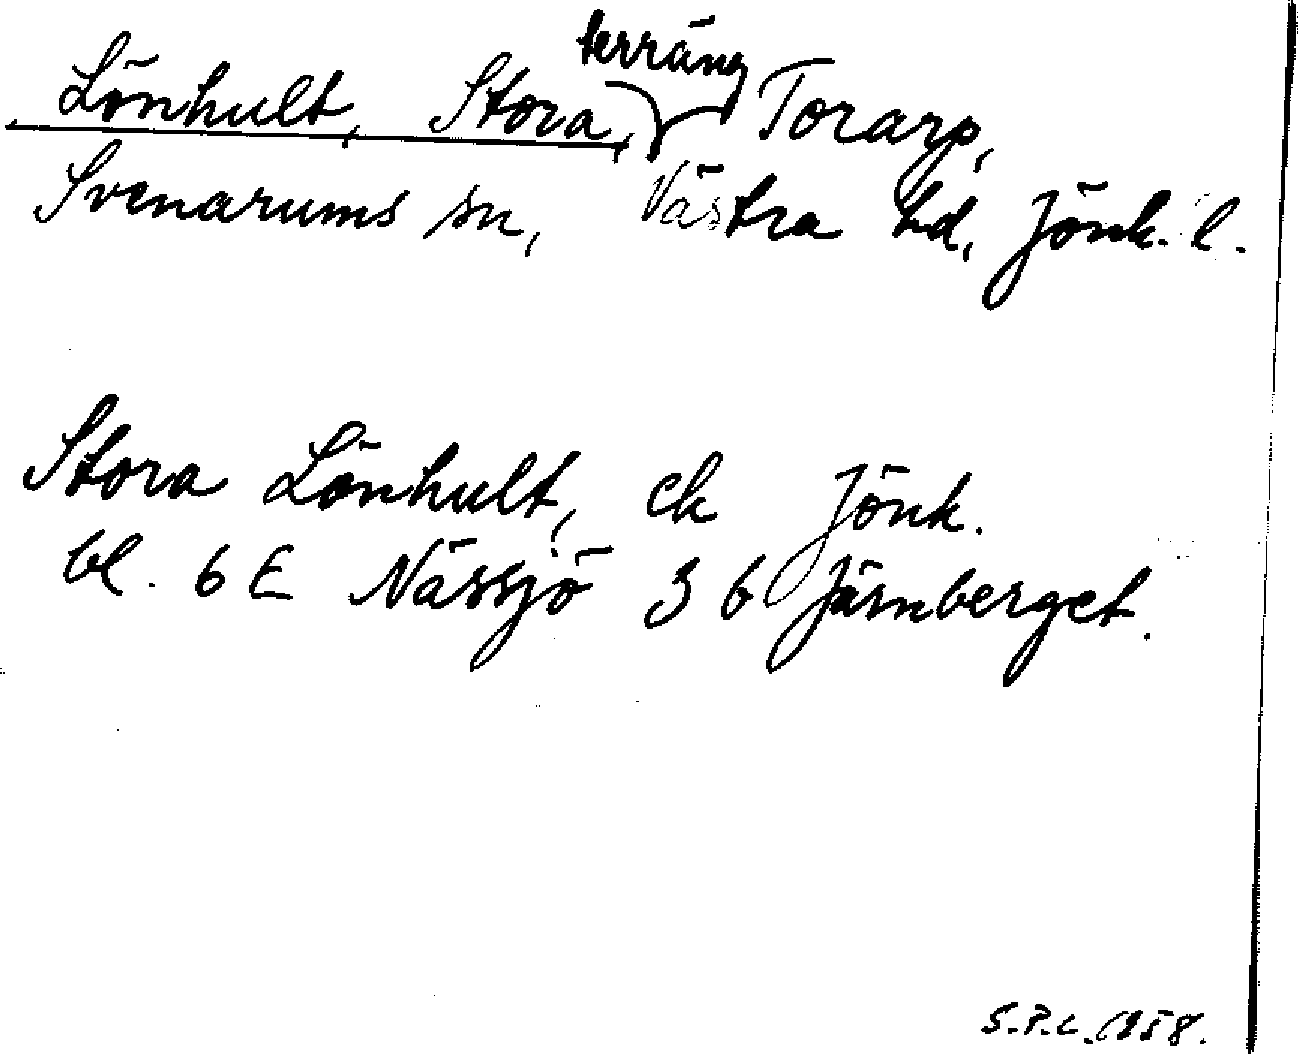 Lönhult, Stora, terräng Torarp,
Svenarums sn, Västra hd, Jönk. l.
Stora Lönhult, ek Jönk.
bl. 6 E Nässjö 3 b Järnberget.
S.P.L. 1958.